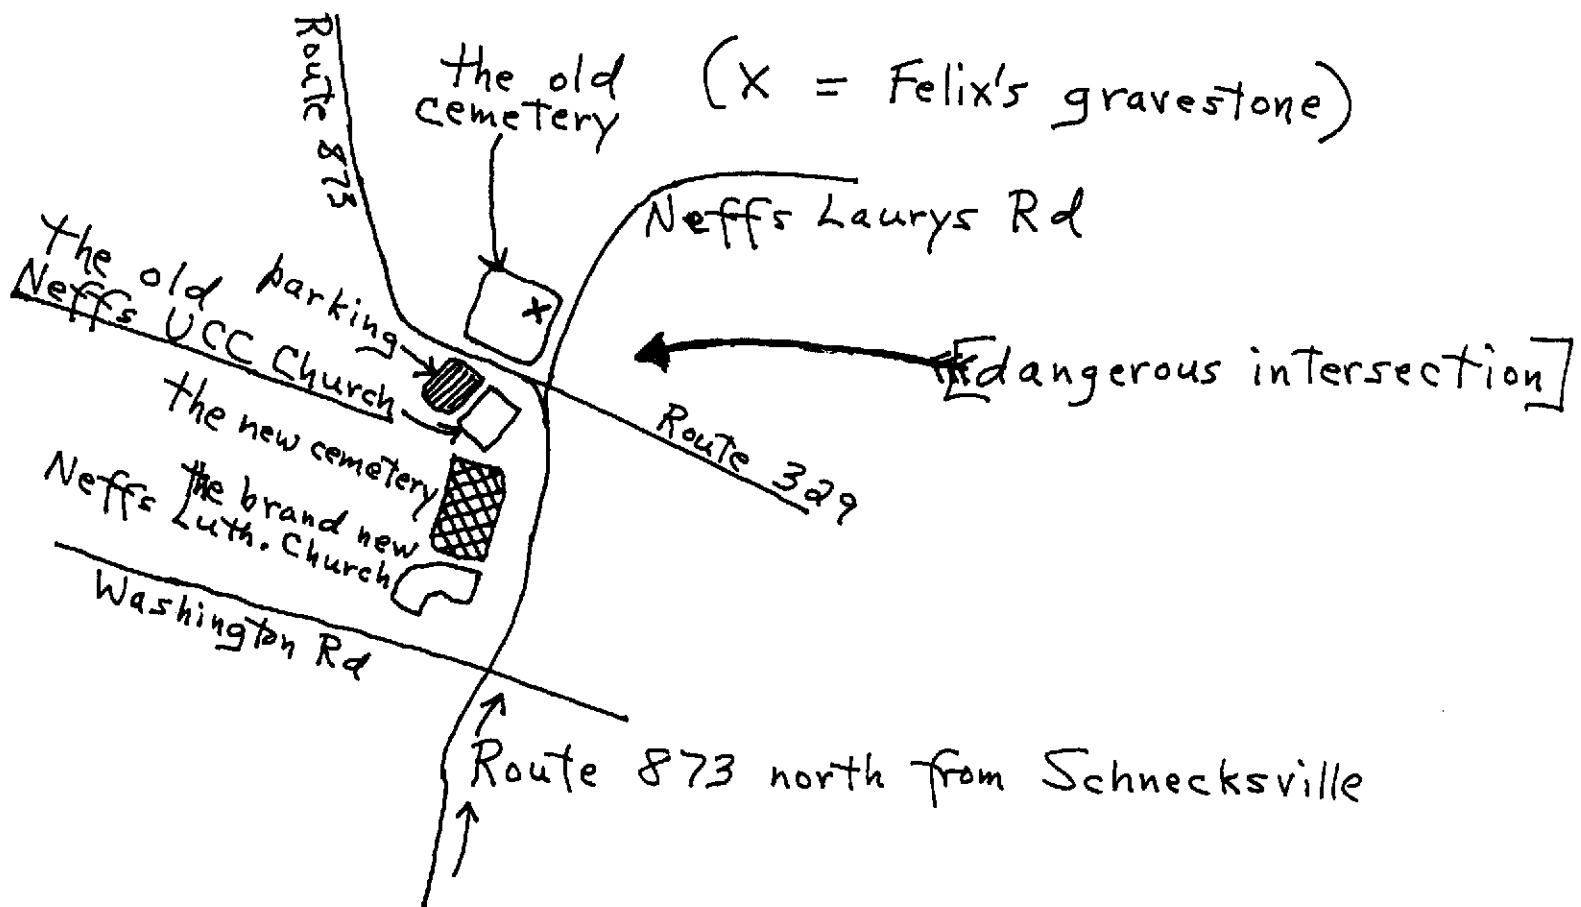 Route 873
the old
cemetery
(X = Felix's gravestone)
Neffs Laurys Rd
X
parking
The old
Neffs UCC Church
[dangerous intersection]
the new cemetery
Route 329
the brand new
Neffs Luth. Church
Washington Rd
Route 873 north from Schnecksville